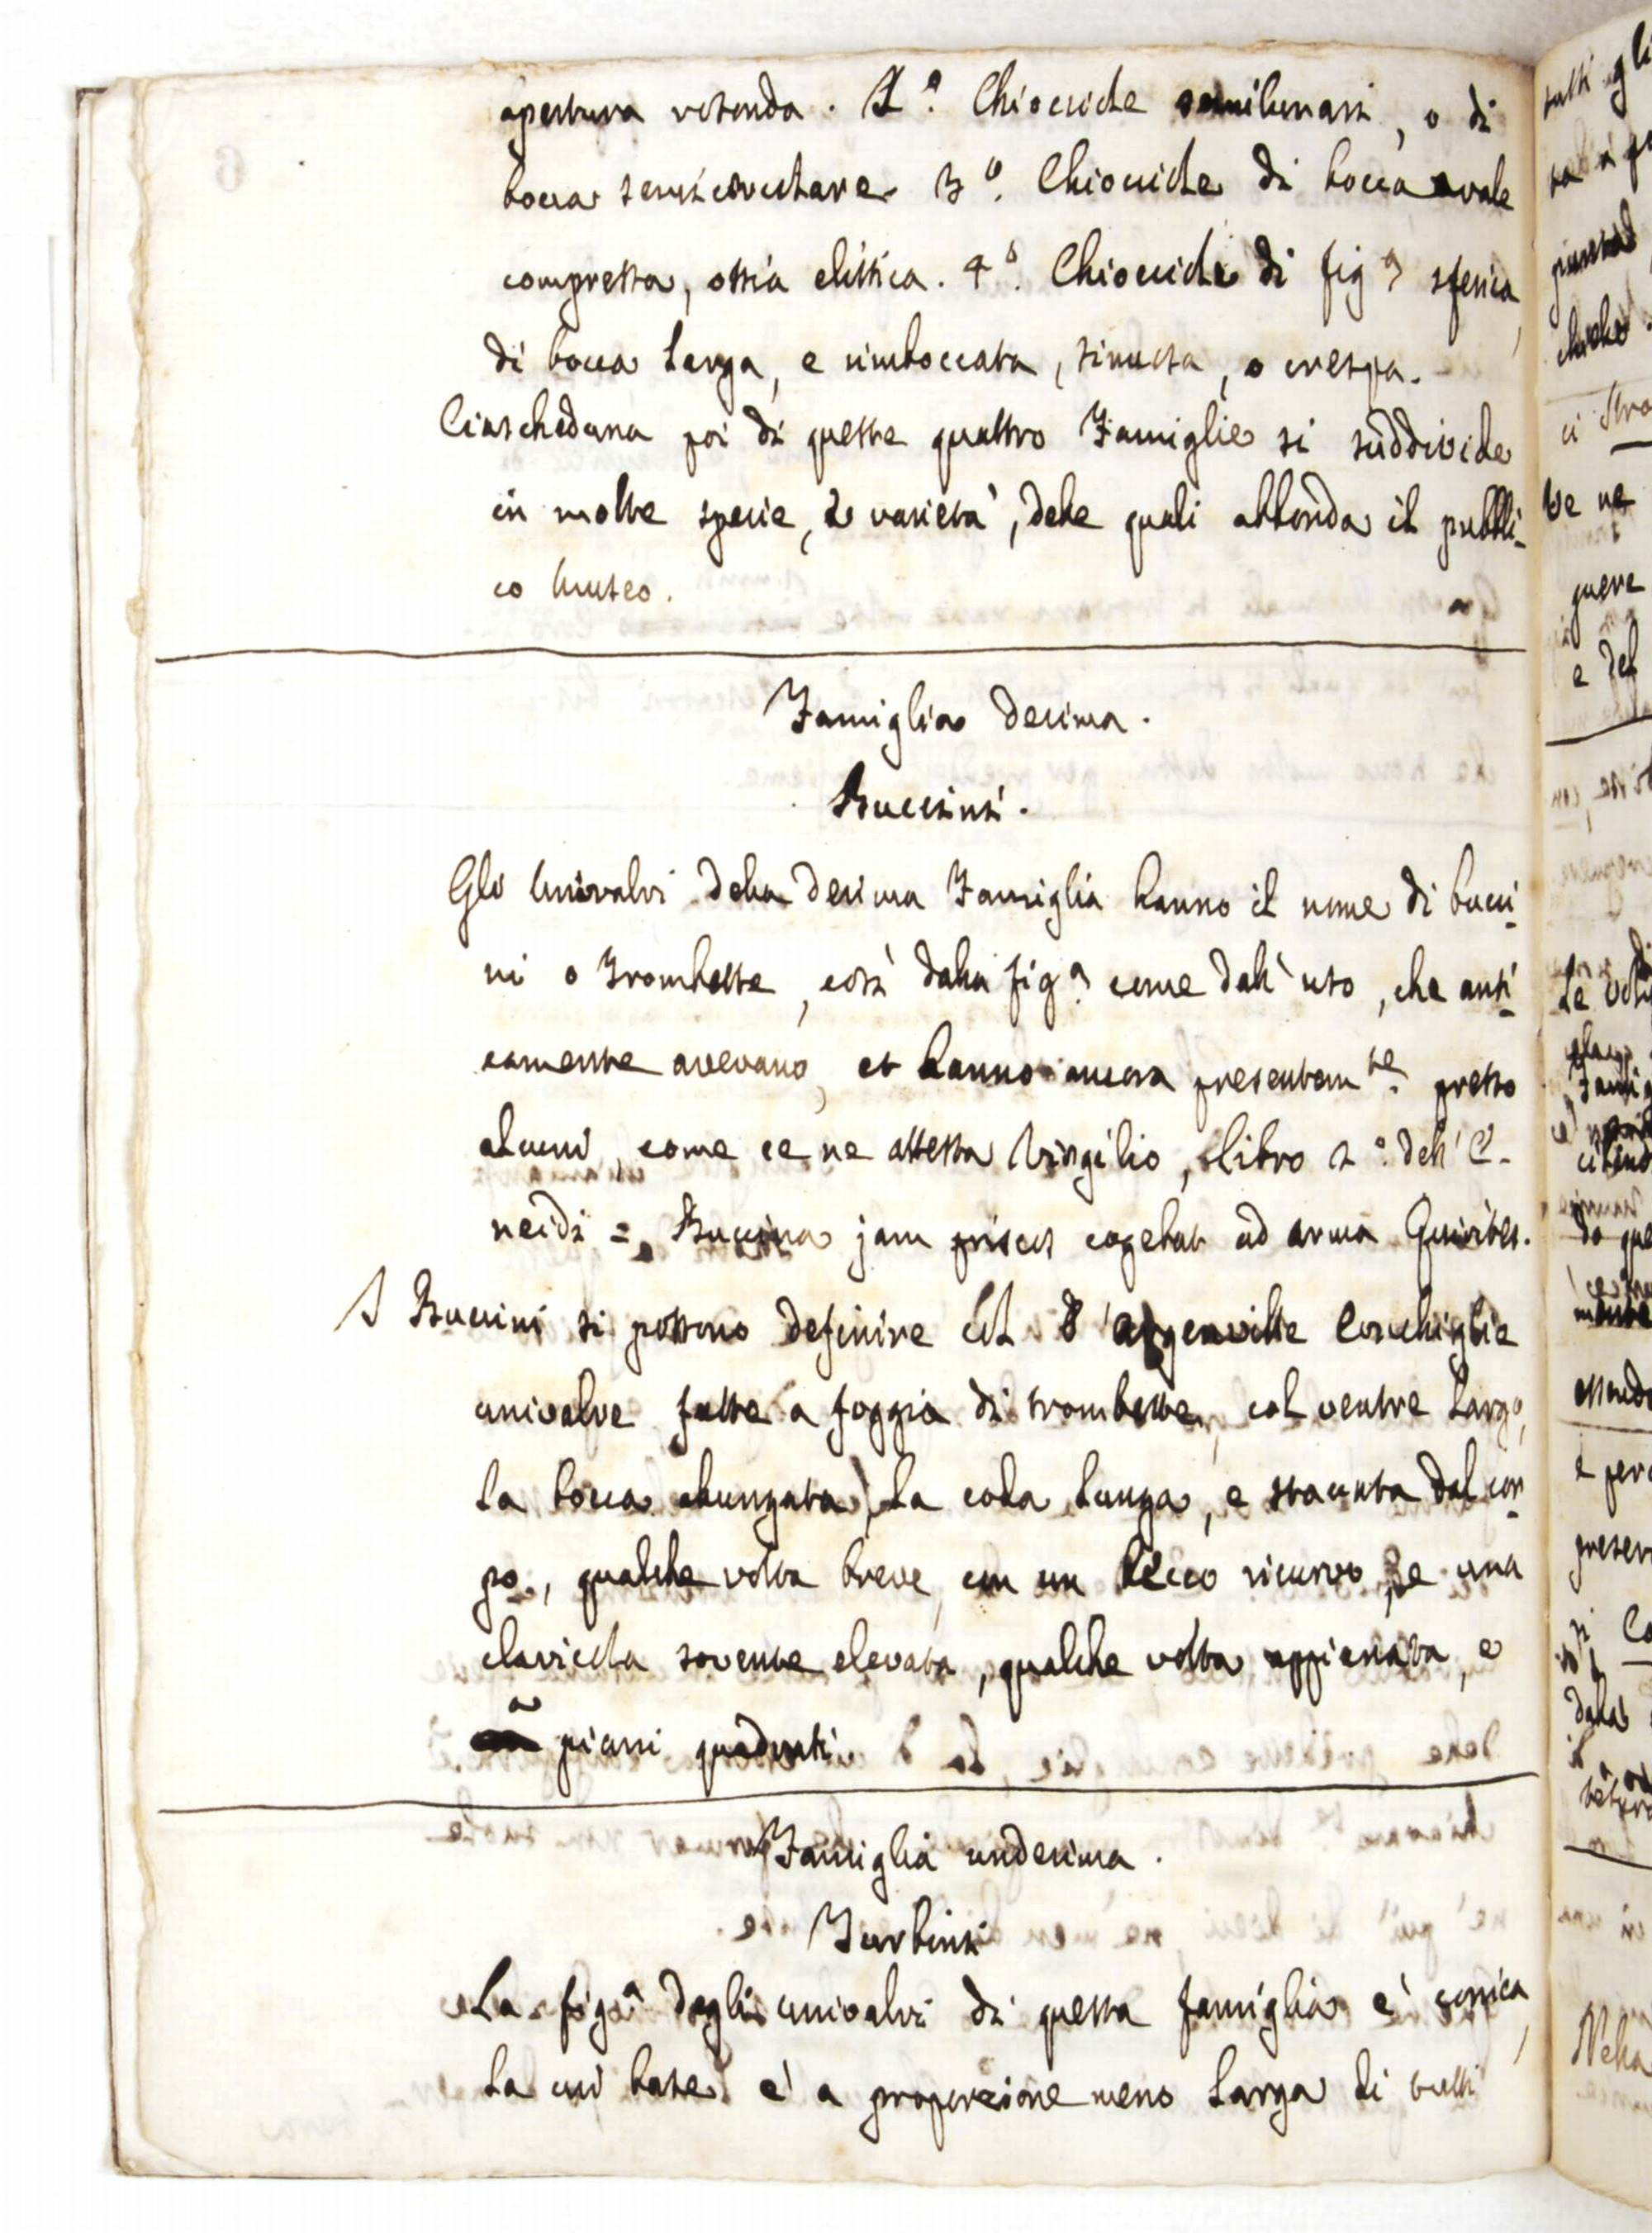 apertura rotonda. 2.° Chiocciole semilunari, o di
bocca semicircolare. 3.° Chiocciole di bocca ovale
compressa, ossia elittica. 4.° Chiocciole di fig.a sferica,
di bocca larga, e rimboccata, sinuosa, o crespa.
Ciascheduna poi di queste quattro Famiglie si suddivide
in molte specie, e varietà, delle quali abbonda il pubbli-
co Museo.
Famiglia decima.
Buccini.
Gli Univalvi della decima Famiglia hanno il nome di bucci-
ni o Trombette, così dalla fig.a come dall'uso, che anti-
camente avevano, et hanno ancora presentem.te presso
alcuni, come ce ne attesta Virgilio, libro 2.° dell'E-
neidi = Buccina jam priscos cogebat ad arma Quirites.
I Buccini si possono definire col d'argenville Conchiglie
univalve fatte a foggia di trombette, col ventre largo,
la bocca allungata, la coda lunga, e staccata dal cor-
po, qualche volta breve, con un becco ricurvo, e una
clavicola sovente elevata, qualche volta appianata, e
a piani quadrati.
Famiglia undecima.
Turbini
La fig.a degli univalvi di questa famiglia e' conica,
la cui base e' a proporzione meno larga di tutti